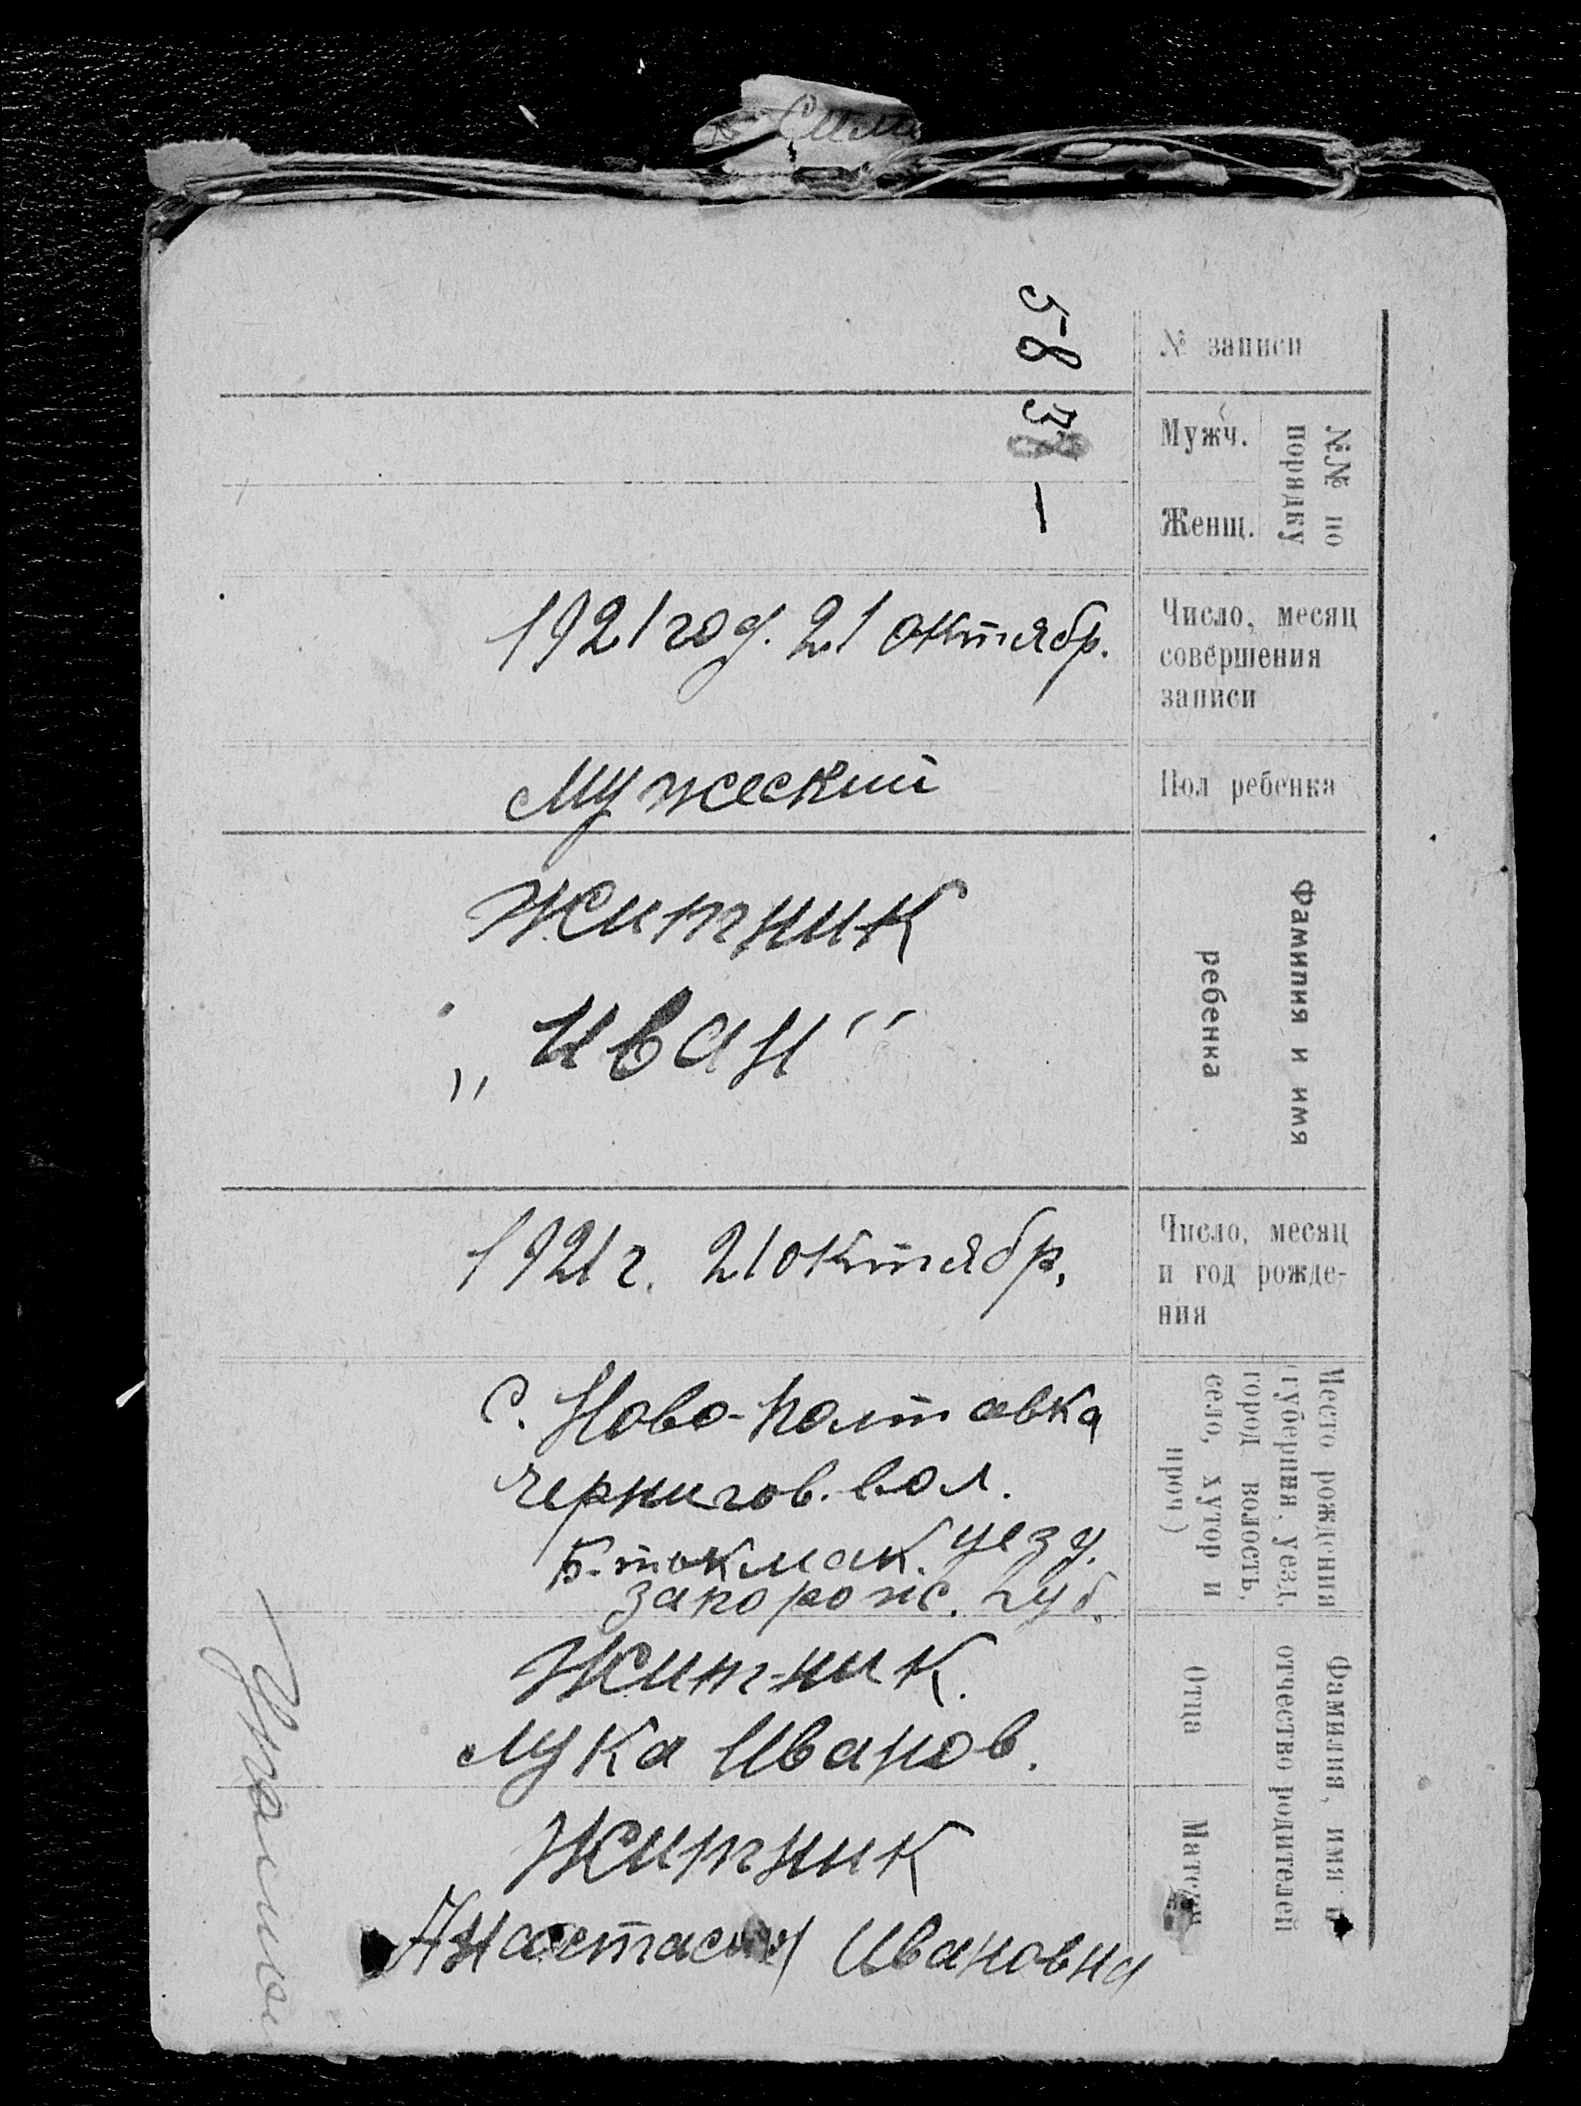 № записи
58
№№ по порядку
Мужч.
5
Женщ.
—
Число, месяц
совершения
записи
1921 год. 21 октябр.
Пол ребенка
Мужеский
Фамилия и имя
ребенка
Житник
„Иван"
Число, месяц
и год рожде-
ния
1921 г. 21 октябр.
Место рождения
(губерния, уезд,
город волость,
село, хутор и
проч)
с. Ново-Полтавка
Чернигов. вол.
Б.-токмак. уезд.
Запорож. губ.
Фамилия, имя и
отчество родителей
Отца
Житник.
Лука Иванов.
Матери
Житник
Анастасия Ивановна